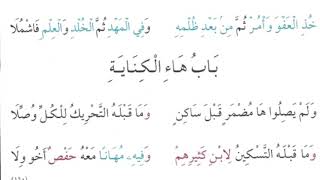 خُذِ الْعَفْوَ وَأْمُرْ ثُمَّ مِنْ بَعْدِ ظُلْمِهِ وَفِي الْمَهْدِ ثُمَّ الْخُلْدِ وَالْعِلْمِ فَاشْمُلَا
بَابُ هَاءِ الْكِنَايَةِ
وَلَمْ يَصِلُوا هَا مُضْمَرٍ قَبْلَ سَاكِنٍ وَمَا قَبْلَهُ التَّحْرِيكُ لِلْكُلِّ وُصِّلَا
وَمَا قَبْلَهُ التَّسْكِينُ لِابْنِ كَثِيرِهِمْ وَفِيهِ مُهَانًا مَعْهُ حَفْصٌ أَخُو وِلَا